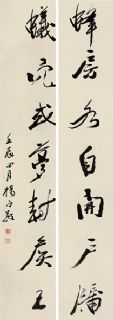 蜂房各自開户牖
蟻穴或夢封侯王
壬辰四月楊守敬